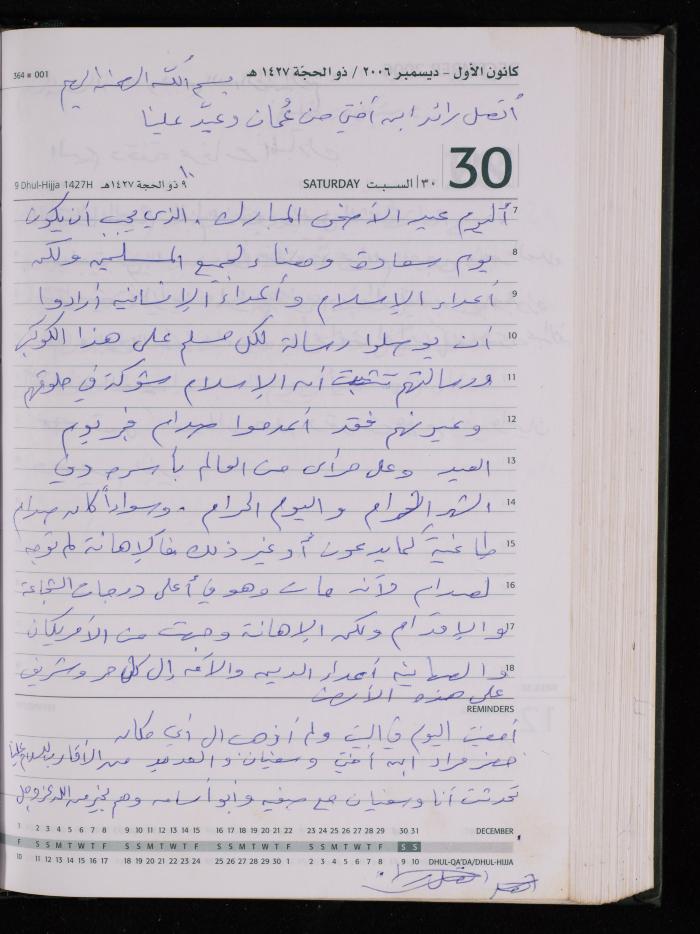 364 ■ 001
كانون الأول - ديسمبر ٢٠٠٦ / ذو الحجّة ١٤٢٧ هـ
بسم الله الرحمن الرحيم
أتصل رائد ابن أختي من عُمان وعيّد علينا
30
٣٠ السبت SATURDAY
١٠
٩ ذو الحجة ١٤٢٧هـ 9 Dhul-Hijja 1427H
7 أليوم عيد الأضحى المبارك . الذي يجب أن يكون
8 يوم سعادة وهناء لجميع المسلمين ولكن
9 أعداء الإسلام وأعداء الإنسانية أرادوا
10 أن يوسلوا رسالة لكل مسلم على هذا الكوكب
11 ورسالتهم تثبت أن الإسلام شوكة في حلوقهم
12 وعيونهم فقد أعدموا صدام فجر يوم
13 العيد وعلى مرأى من العالم بأسره وفي
14 الشهر الحرام واليوم الحرام . وسواءاً كان صدام
15 طاغية كما يدعون أو غير ذلك فالإهانة لم توجه
16 لصدام لأنه مات وهو في أعلى درجات الشجاعة
17 والإقدام ولكن الإهانة وجهت من الأمريكان
18 والصهاينة أعداء الدين والأمة إلى كل حر وشريف
على هذه الأرض
REMINDERS
أمضيت اليوم في البيت ولم أذهب الى أي مكان
حضر مراد ابن أختي وسفيان والعديد من الأقارب للسلام علينا
تحدثت أنا وسفيان مع صفيه وأبو أسامه وهم بخير من الله عز وجل
1 2 3 4 5 6 7 8 9 10 11 12 13 14 15 16 17 18 19 20 21 22 23 24 25 26 27 28 29 30 31 DECEMBER
F S S M T W T F S S M T W T F S S M T W T F S S M T W T F S S
10 11 12 13 14 15 16 17 18 19 20 21 22 23 24 25 26 27 28 29 30 1 2 3 4 5 6 7 8 9 10 DHUL-QA'DA/DHUL-HIJJA